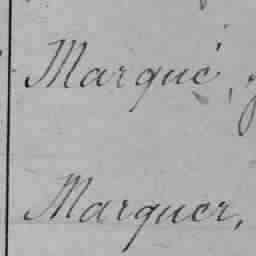 Marqué,
Marquer,